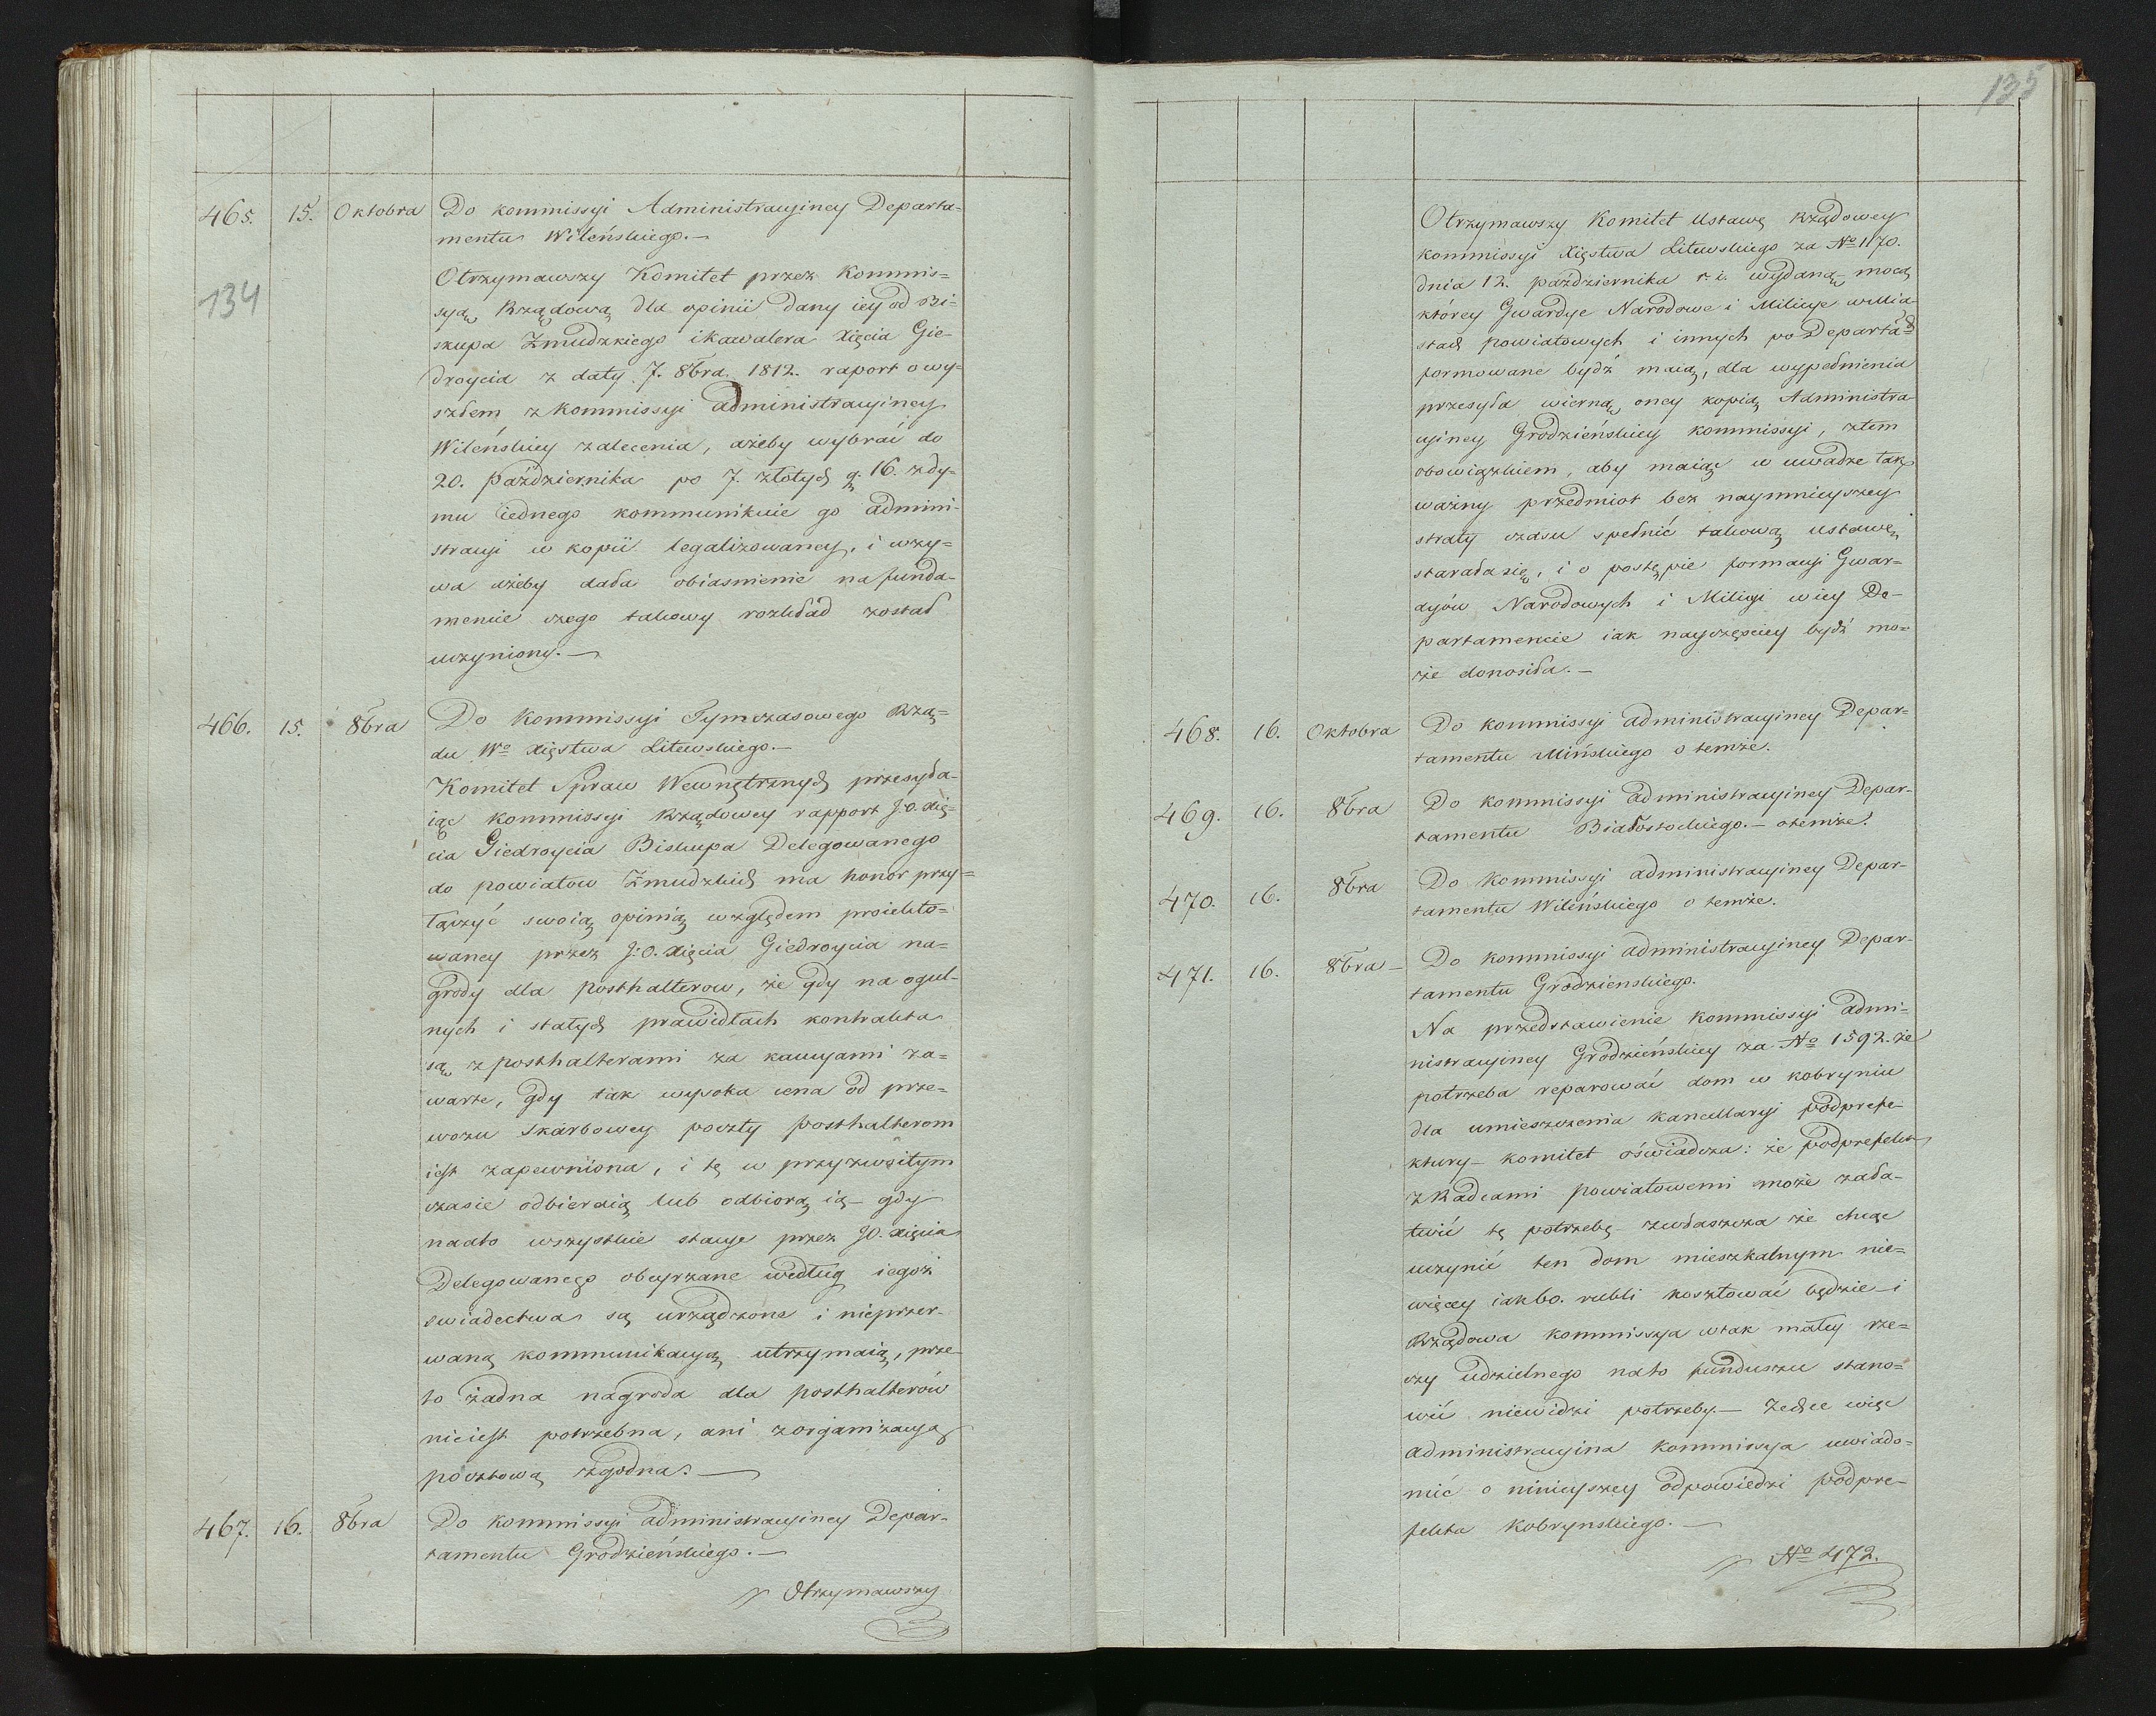 465. 15. Oktobra Do kommissyi Administracyiney Departa-
mentu Wileńskiego.—
134
Otrzymawszy Komitet przez Kommis=
syą Rządową dla opinii dany iey od Bi-
skupa Żmudzkiego i kawalera Xięcia Gie-
droycia z daty 7. 8bra 1812. raport o wy-
szłem z Kommissyi administracyiney
Wileńskiey zalecenia, ażeby wybrać do
20. Października po 7. złotych g. 16. z dy-
mu iednego kommunikuie go admini-
stracyi w kopii legalizowaney, i wzy=
wa ażeby dała obiasnienie na funda-
mencie czego takowy rozkład został
uczyniony.—
466. 15. 8bra Do Kommissyi Tymczasowego Rzą=
du Wo Xięstwa Litewskiego.—
Komitet Spraw Wewnętrznych przesyła-
iąc kommissyi Rządowey rapport J.O. Xię-
cia Giedroycia Biskupa Delegowanego
do powiatow Żmudzkich ma honor przy=
łączyć swoią opinią względem proiekto=
waney przez J:O. Xięcia Giedroycia na=
grody dla posthalterow, że gdy na ogul-
nych i stałych prawidłach kontrakta
są z posthalterami za kaucyami za=
warte, gdy tak wysoka cena od prze=
wozu skarbowey poczty posthalterom
iest zapewniona, i tę w przyzwoitym
czasie odbieraią lub odbiorą ią— gdy
nadto wszystkie stacye przez JO. Xięcia
Delegowanego obeyrzane według iegoż
swiadectwa są urządzone i nieprzer-
waną kommunikacyą utrzymaią, prze-
to żadna nagroda dla posthalterów
nieiest potrzebna, ani z organizacyą
pocztową zgodna.—
467. 16. 8bra Do kommissyi administracyiney Depar-
tamentu Grodzieńskiego.—
Otrzymawszy
135
Otrzymawszy Komitet Ustawę Rządowey
kommissyi Xięstwa Litewskiego za No 1170.
dnia 12. października r. i. wydaną— mocą
którey Gwardye Narodowe i Milicye w Mia-
stach powiatowych i innych po Departach
formowane bydź maią, dla wypełnienia
przesyła wierną oney kopią Administra-
cyiney Grodzieńskiey kommissyi, z tem
obowiązkiem, aby maiąc w uwadze tak
ważny przedmiot bez naymnieyszey
straty czasu spełnić takową ustawę
starała się, i o postępie formacyi Gwar=
dyów Narodowych i Milicyi w iey De-
partamencie iak nayczęściey bydź mo=
że donosiła.—
468. 16. Oktobra Do kommissyi administracyiney Depar=
tamentu Mińskiego o temże.
469. 16. 8bra Do kommissyi administracyiney Depar-
tamentu Białostockiego.— o temże.
470. 16. 8bra Do Kommissyi administracyiney Depar-
tamentu Wileńskiego o temże.
471. 16. 8bra— Do kommissyi administracyiney Depar-
tamentu Grodzienskiego.
Na przedstawienie kommissyi admi-
nistracyiney Grodzieńskiey za No 1592. że
potrzeba reparować dom w kobryniu
dla umieszczenia kancellaryi podprefe-
ktury— komitet oświadcza: że podprefekt
z Radcami powiatowemi może zała-
twić tę potrzebę— zwłaszcza że chcąc
uczynić ten dom mieszkalnym nie=
więcey iak 60. rubli kosztować będzie— i
Rządowa kommissya w tak małey rze=
czy udzielnego na to funduszu stano=
wić niewidzi potrzeby.— Zechce więc
administracyina kommissya uwiado=
mić o ninieyszey odpowiedzi podpre-
fekta Kobrynskiego.—
No 472.